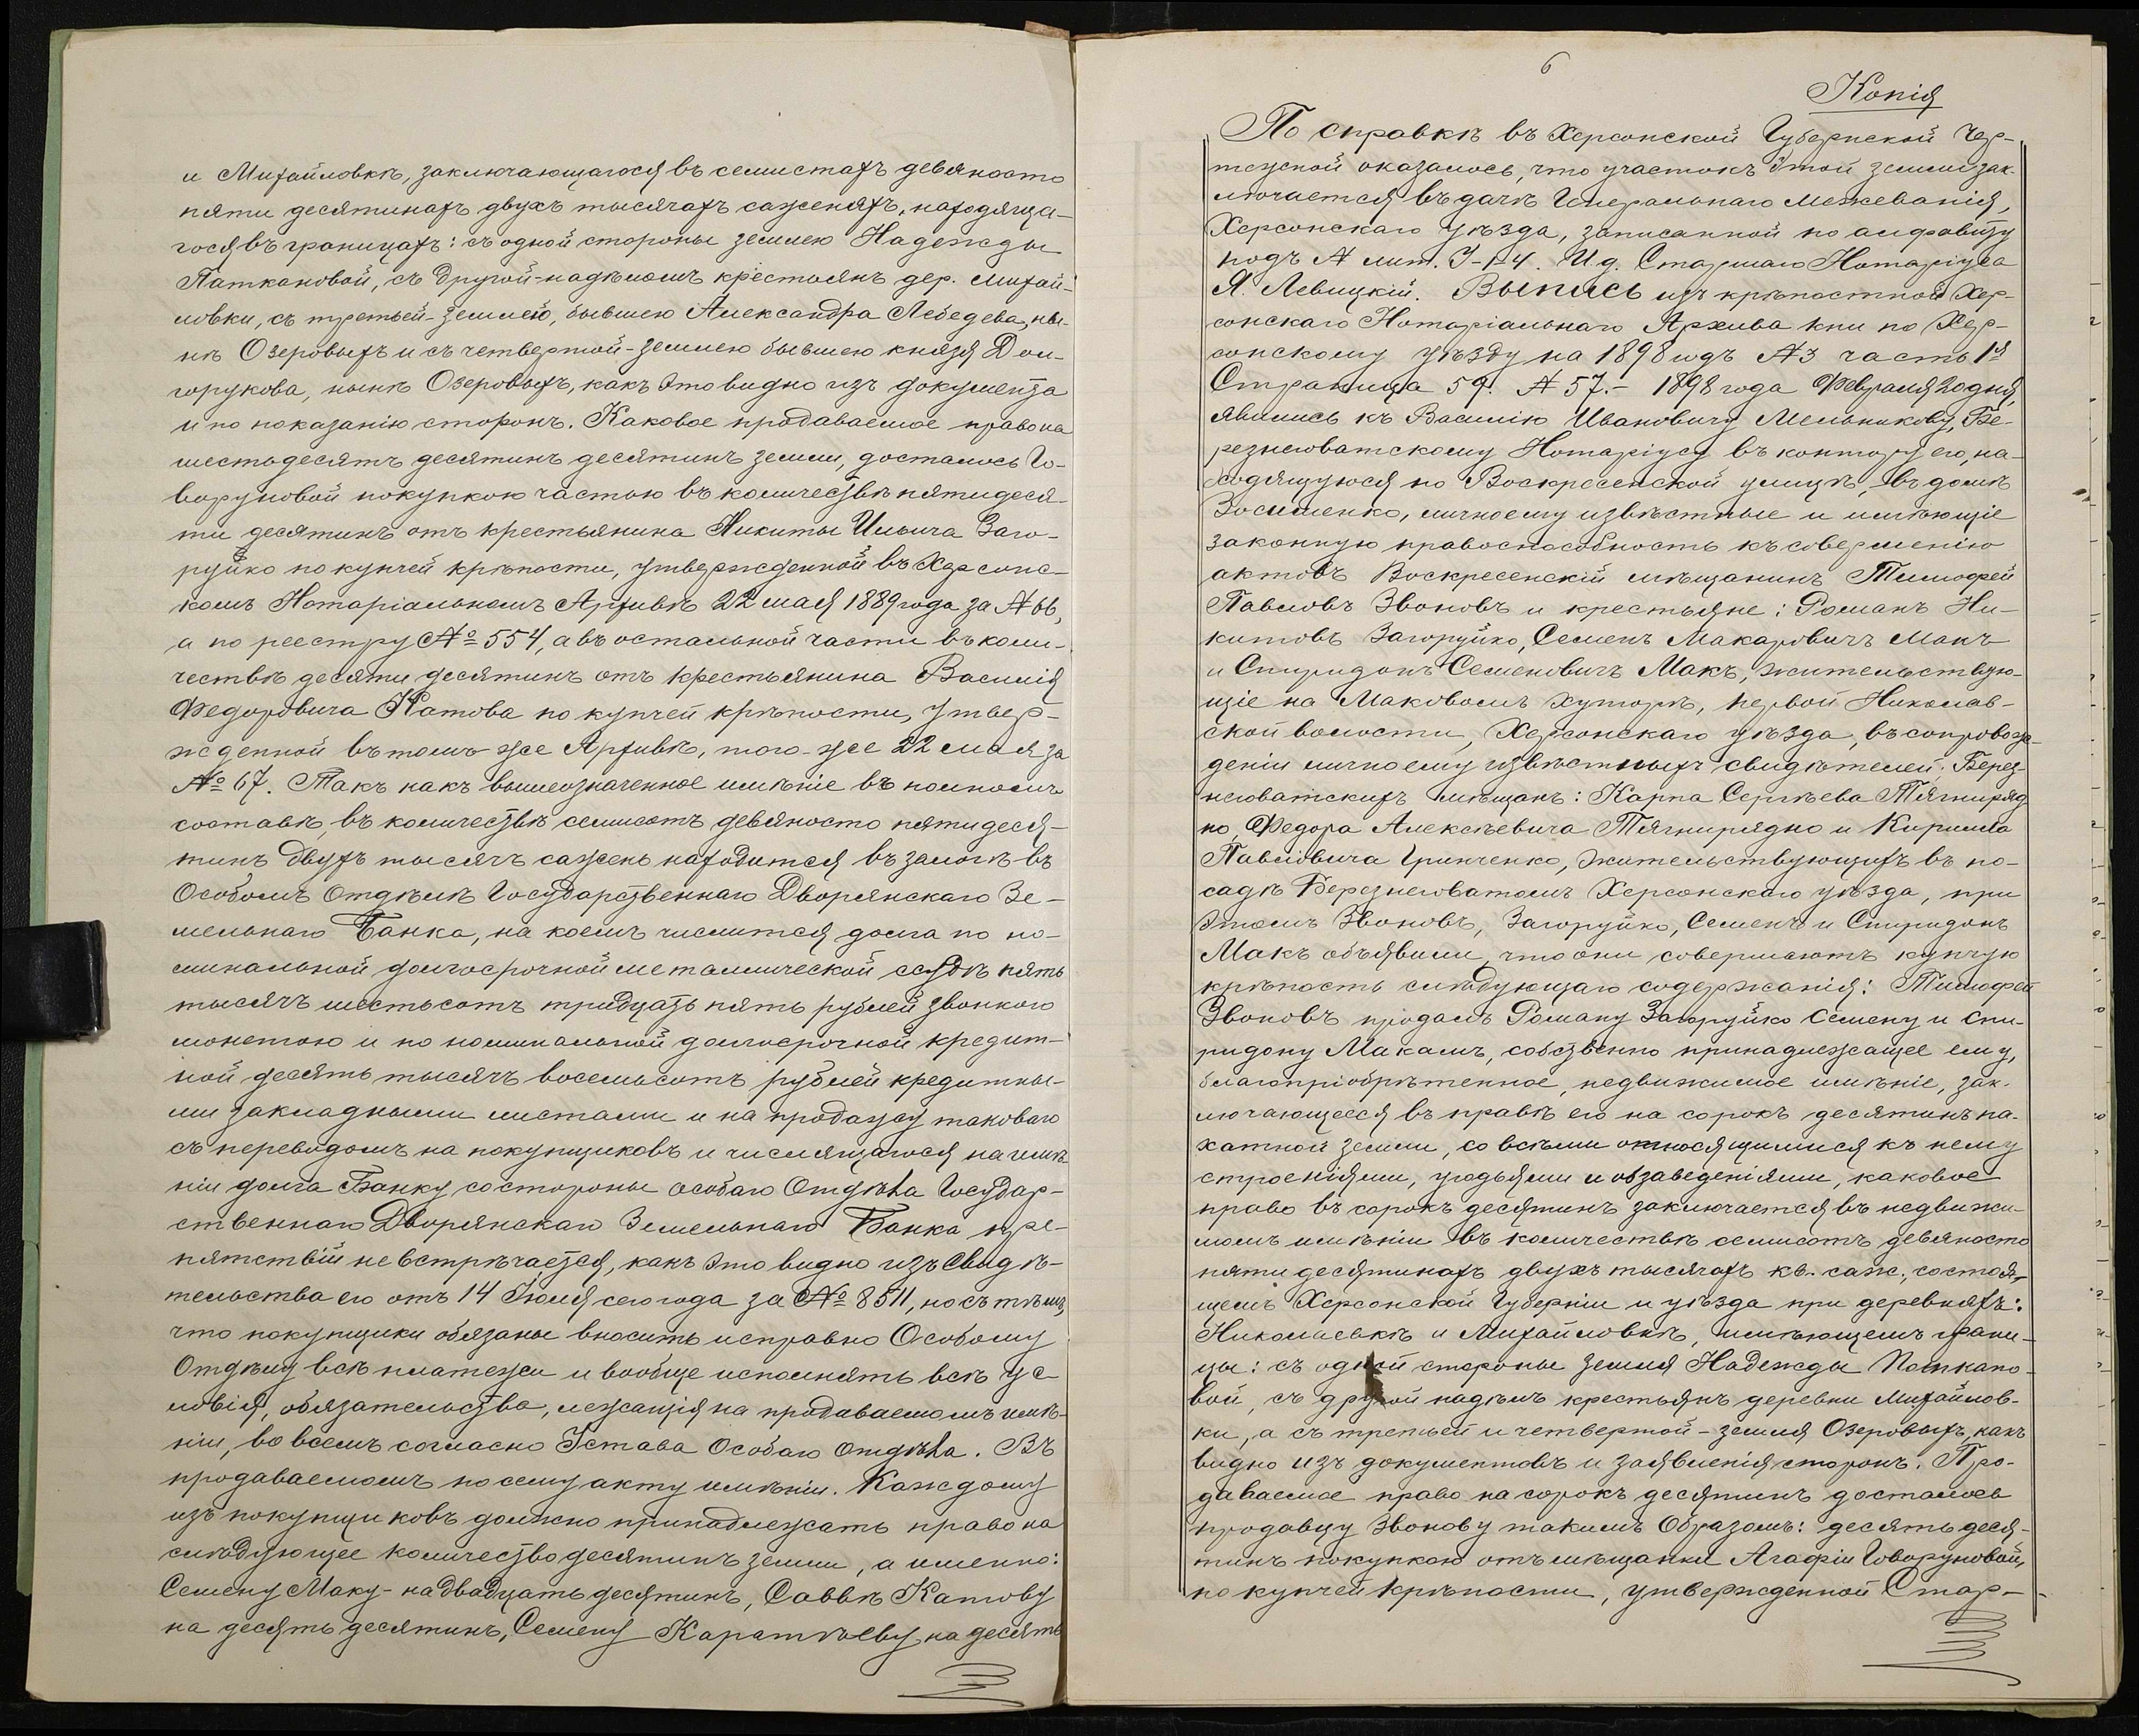 и Михайловкѣ, заключающагося въ семистахъ девяносто
пяти десятинахъ двухъ тысячахъ саженяхъ, находяща-
гося въ границахъ: съ одной стороны землею Надежды
Паткановой, съ другой-надѣломъ крестьянъ дер. Михай-
ловки, съ третьей-землею, бывшею Александра Лебедева, ны-
нѣ Озеровыхъ и съ четвертой-землею бывшею князя Дол-
горукова, нынѣ Озеровыхъ, какъ это видно изъ документа
и по показанію сторонъ. Каковое продаваемое право на
шестьдесятъ десятинъ десятинъ земли, досталось Го-
воруновой покупкою частью въ количествѣ пятидеся-
ти десятинъ отъ крестьянина Никиты Ильича Заго-
руйко по купчей крѣпости, утвержденной въ Херсонс-
комъ Нотаріальномъ Архивѣ 22 мая 1889 года за № 66,
а по реестру № 554, а въ остальной части въ коли-
чествѣ десяти десятинъ отъ крестьянина Василія
Федоровича Катова по купчей крѣпости, утвер-
жденной въ томъ-же Архивѣ, того-же 22 мая за
№ 67. Такъ какъ вышеозначенное имѣніе въ полномъ
составѣ, въ количествѣ семисотъ девяносто пяти деся-
тинъ двухъ тысячъ сажень находится въ залогѣ въ
Особомъ Отдѣлѣ Государственнаго Дворянскаго Зе-
мельнаго Банка, на коемъ числится долга по но-
минальной долгосрочной металлической ссудѣ пять
тысячъ шестьсотъ тридцать пять рублей звонкою
монетою и по номинальной долгосрочной кредит-
ной десять тысячъ восемьсотъ рублей кредитны-
ми закладными листами и на продажу таковаго
съ переводомъ на покупщиковъ и числящагося на имѣ-
ніи долга Банку со стороны Особаго Отдѣла Государ-
ственнаго Дворянскаго Земельнаго Банка пре-
пятствій не встрѣчается, какъ это видно изъ свидѣ-
тельства его отъ 14 Іюля сего года за № 8511, но съ тѣмъ,
что покупщики обязаны вносить исправно Особому
Отдѣлу всѣ платежи и вообще исполнять всѣ ус-
ловія, обязательства, лежащія на продаваемомъ имѣ-
ніи, во всемъ согласно Устава Особаго Отдѣла. Въ
продаваемомъ по сему акту имѣніи. Каждому
изъ покупщиковъ должно принадлежать право на
слѣдующее количество десятинъ земли, а именно:
Семену Маку - на двадцать десятинъ, Саввѣ Катову
на десять десятинъ, Семену Каратѣеву на десять
6
Копія
По справкѣ въ Херсонской Губернской Чер-
тежной оказалось, что участокъ этой земли зак-
лючается въ дачѣ Генеральнаго Межеванія,
Херсонскаго уѣзда, записанной по алфавиту
подъ № лит. У-№4. И.д. Старшаго Нотаріуса
Я. Левицкій. Выпись изъ крѣпостной Хер-
сонскаго Нотаріальнаго Архива кни по Хер-
сонскому уѣзду на 1898 годъ №3 часть 1я
Страница 59. № 57.- 1898 года Февраля 20 дня,
явились къ Василію Ивановичу Мельникову, Бе-
резнеговатскому Нотаріусу въ контору его, на-
ходящуюся по Воскресенской улицѣ, въ домѣ
Зосименко, лично ему извѣстные и имѣющіе
законную правоспособность къ совершенію
актовъ Воскресенскій мѣщанинъ Тимофей
Павловъ Звоновъ и крестьяне: Романъ Ни-
китовъ Загоруйко, Семенъ Макаровичъ Макъ
и Спиридонъ Семеновичъ Макъ, жительствую-
щіе на Маковомъ хуторѣ, первой Николав-
ской волости, Херсонскаго уѣзда, въ сопровож-
деніи лично ему извѣстныхъ свидѣтелей; Берез-
неговатскихъ мѣщанъ: Карпа Сергѣева Тягниряд
но, Федора Алексѣевича Тягнирядно и Кирилла
Павловича Гринченко, жительствующихъ въ по-
садѣ Березнеговатомъ Херсонскаго уѣзда, при
этомъ Звоновъ, Загоруйко, Семенъ и Спиридонъ
Макъ объявили, что они совершаютъ купчую
крѣпость слѣдующаго содержанія: Тимофей
Звоновъ продалъ Роману Загоруйко Семену и Спи-
ридону Макамъ, собственно принадлежащее ему,
благопріобрѣтенное, недвижимое имѣніе, зак-
лючающееся въ правѣ его на сорокъ десятинъ па-
хатной земли, со всѣми относящимися къ нему
строеніями, угодьями и обзаведеніями, каковое
право въ сорокъ десятинъ заключается въ недвижи-
момъ имѣніи въ количествѣ семисотъ девяносто
пяти десятинахъ двухъ тысячахъ кв. саж., состоя-
щемъ Херсонской Губерніи и уѣзда при деревняхъ:
Николаевкѣ и Михайловкѣ, имѣющемъ грани-
цы: съ одной стороны земля Надежды Паткано-
вой, съ другой надѣлъ крестьянъ деревни Михайлов-
ки, а съ третьей и четвертой - земля Озеровыхъ, какъ
видно изъ документовъ и заявленія сторонъ. Про-
даваемое право на сорокъ десятинъ досталось
продавцу Звонову такимъ образомъ: десять деся-
тинъ покупкою отъ мѣщанки Агафіи Говоруновой,
по купчей крѣпости, утвержденной Стар-